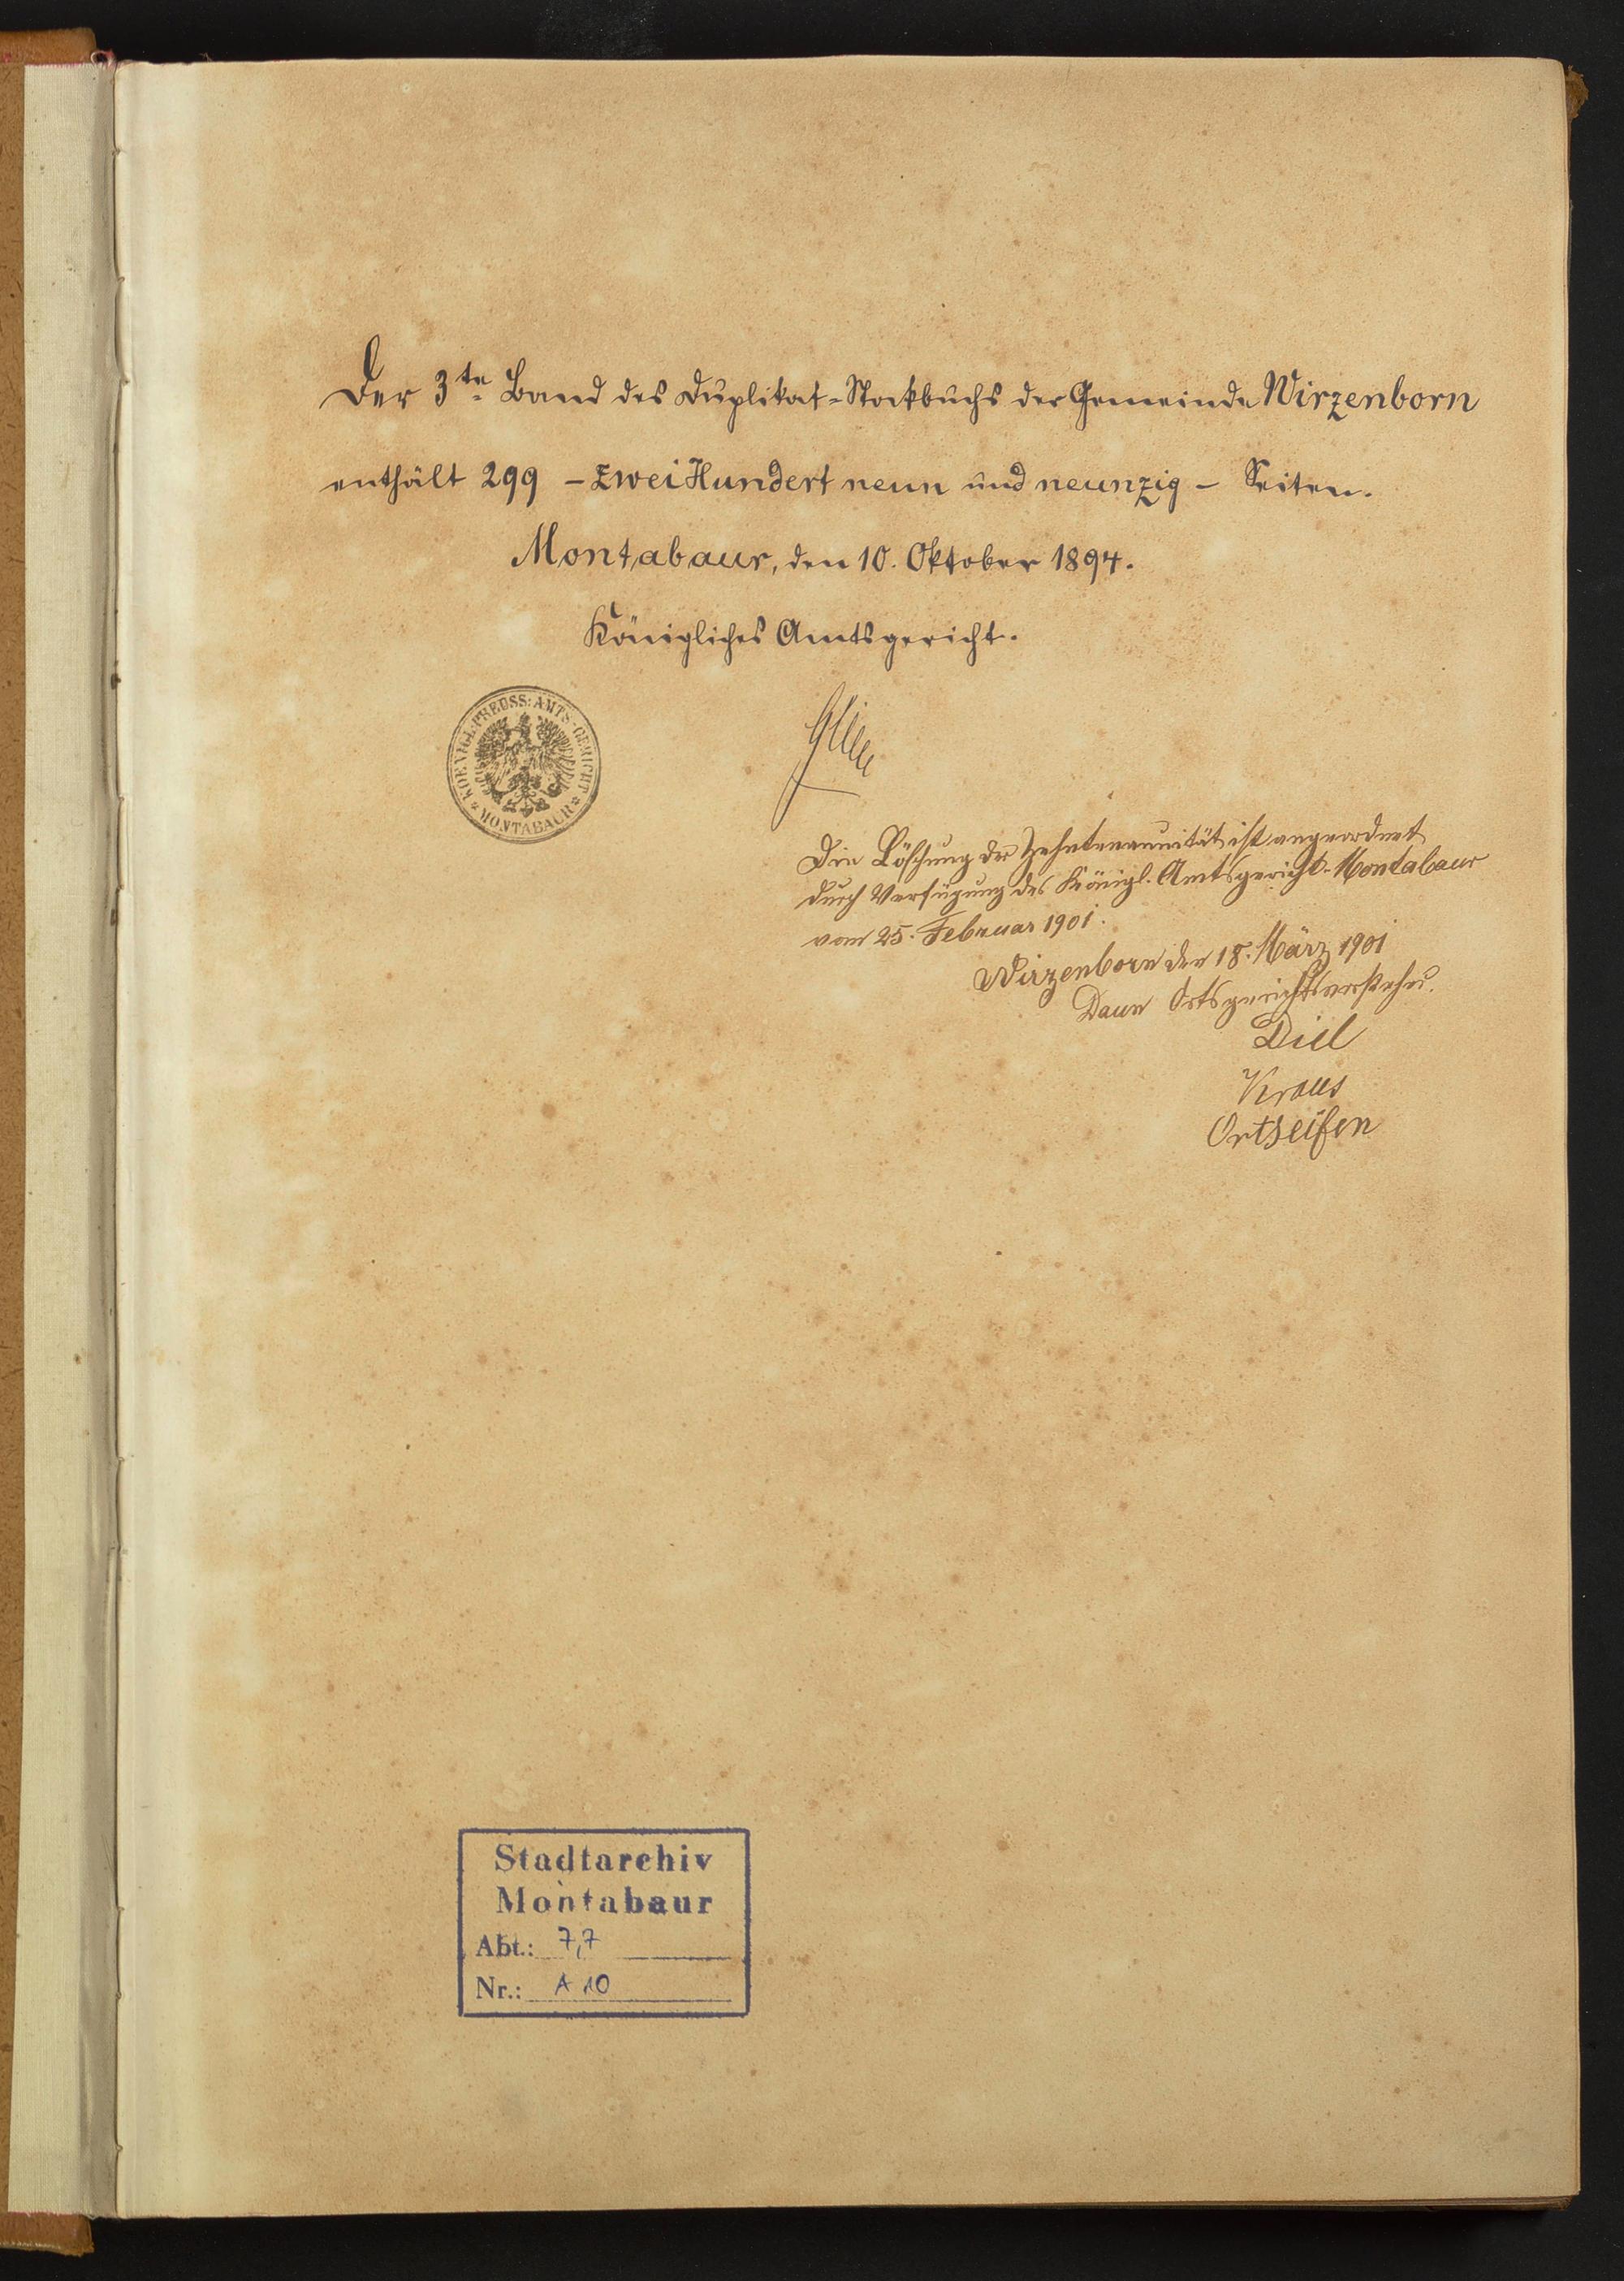 Der 3te Band des Duplikat-Stockbuchs der Gemeinde Wirzenborn
enthält 299 - Zwei Hundert neun und neunzig - Seiten.
Montabaur, den 10. Oktober 1894.
Königliches Amtsgericht.
KOENIGL. PREUSS: AMTS-GERICHT * MONTABAUR *
Die Löschung der Zehntenannuität ist angeordnet
durch Verfügung des Königl. Amtsgericht Montabaur
vom 25. Februar 1901.
Wirzenborn den 18. März 1901
Daun Ortsgerichtsvorsteher.
Diel
Kraus
Ortseifen
Stadtarchiv
Montabaur
Abt.: 7,7
Nr.: A 10